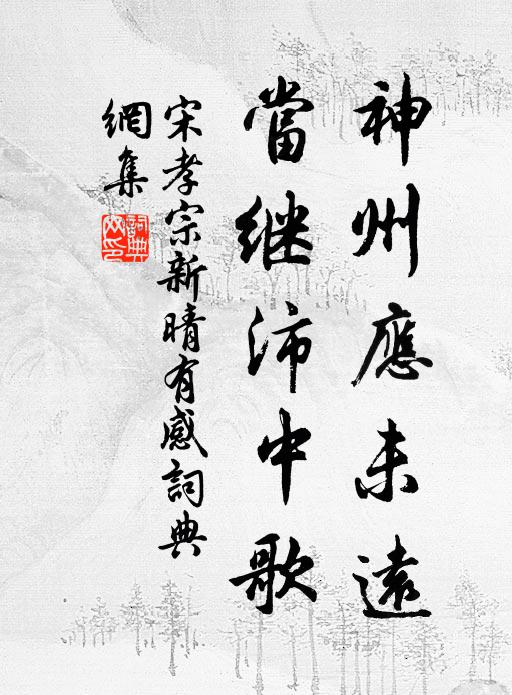 神州應未遠
當继沛中歌
宋孝宗新晴有感詞典
網集
詞典
网印